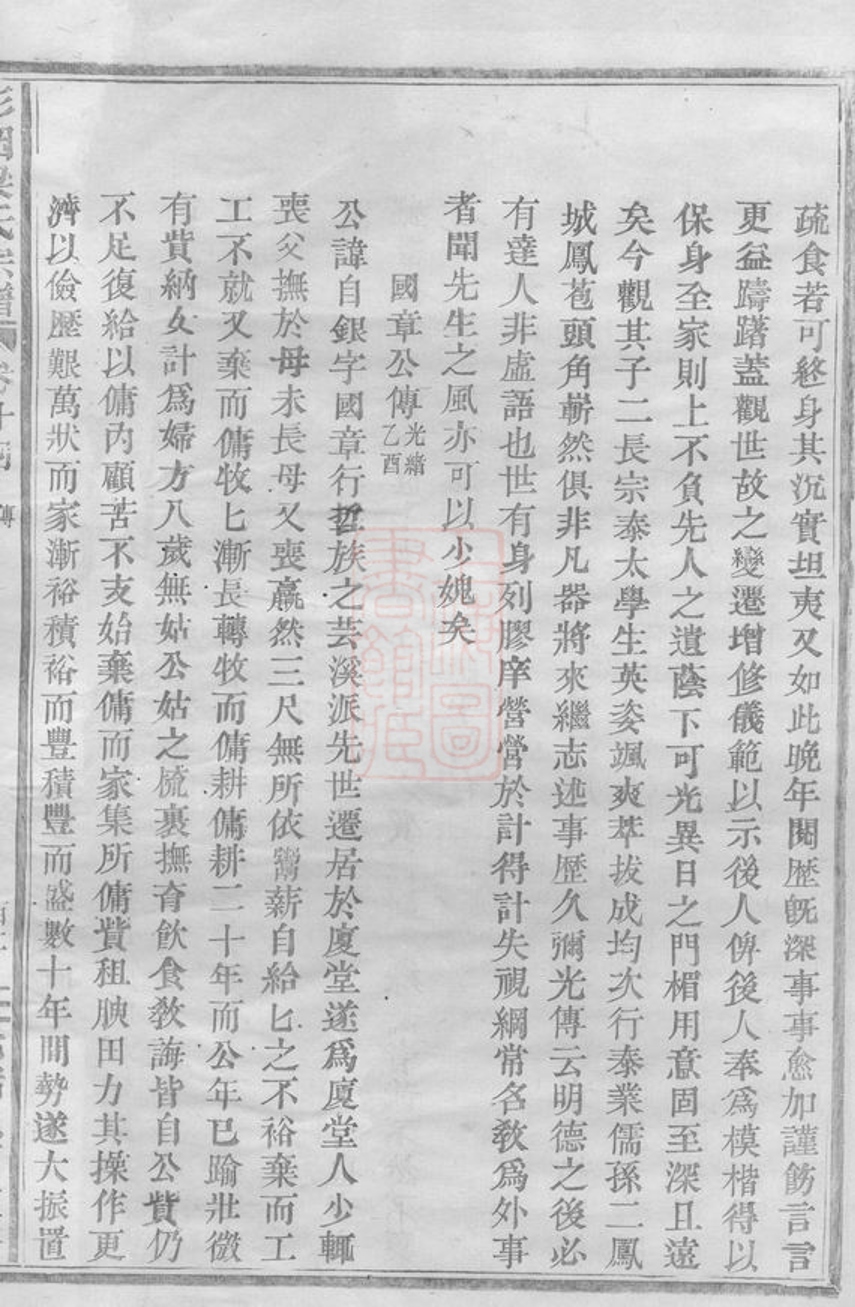 疏食若可終身其沉實坦夷又如此晚年閱歷既深事事愈加謹飭言言
更益躊躇蓋觀世故之變遷增修儀範以示後人俾後人奉爲模楷得以
保身全家則上不負先人之遺蔭下可光異日之門楣用意固至深且遠
矣今觀其子二長宗泰太學生英姿颯爽萃拔成均次行泰業儒孫二鳳
城鳳苞頭角嶄然俱非凡器將來繼志述事歷久彌光傳云明德之後必
有達人非虛語也世有身列膠庠營營於計得計失視綱常名教爲外事
者聞先生之風亦可以少媿矣
國章公傳光緒乙酉
公諱自銀字國章行哲族之芸溪派先世遷居於廈堂遂爲廈堂人少輒
喪父撫於母未長母又喪羸然三尺無所依鬻薪自給匕之不裕棄而工
工不就又棄而傭牧匕漸長轉牧而傭耕傭耕二十年而公年已踰壯微
有貲納女計爲婦方八歲無姑公姑之梳裹撫育飲食教誨皆自公貲仍
不足復給以傭內顧苦不支始棄傭而家集所傭貲租腴田力其操作更
濟以儉歷艱萬狀而家漸裕積裕而豐積豐而盛數十年間勢遂大振置
氏宗譜 卷十 傳